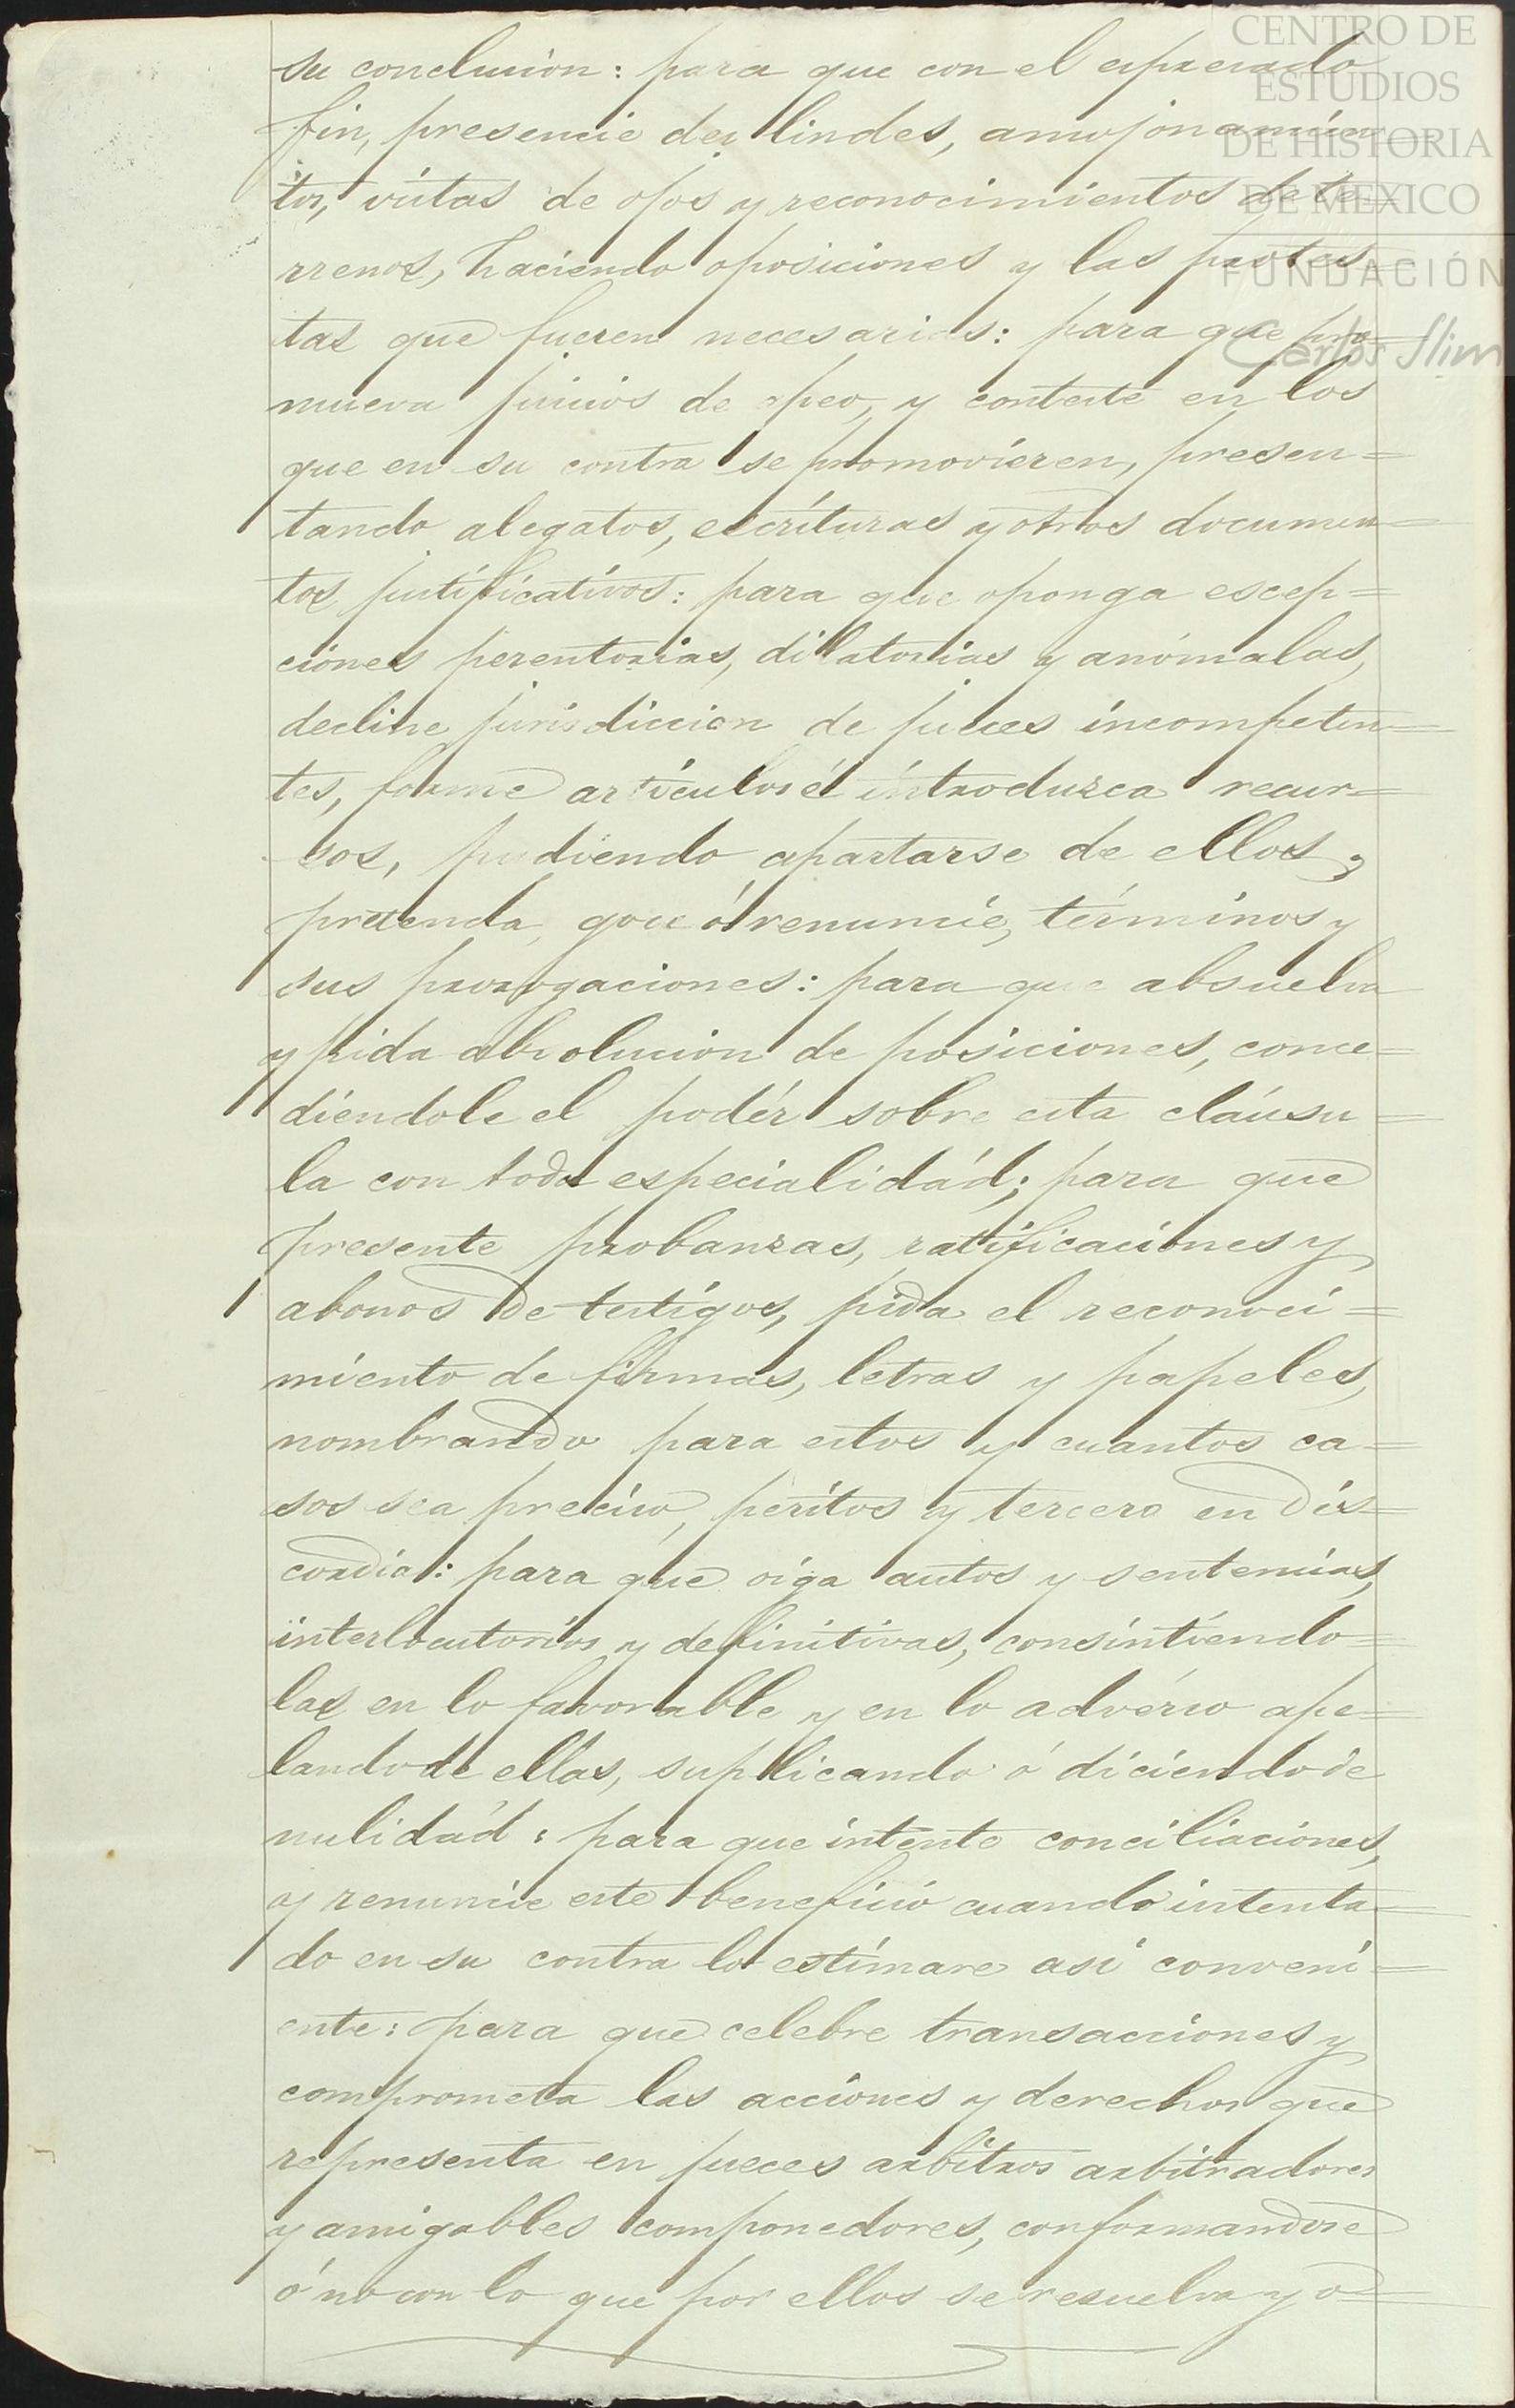 su conclusion: para que con el espresado
fin, presencie deslindes, amojonamien-
tos, vistas de ojos y reconocimientos de te-
rrenos, haciendo oposiciones y las protes-
tas que fueren necesarias: para que pro-
mueva juicios de apeo, y conteste en los
que en su contra se promovieren, presen=
tando alegatos, escrituras y otros documen=
tos justificativos: para que oponga escep=
ciones perentorias, dilatorias y anómalas,
decline jurisdiccion de jueces incompeten=
tes, forme artículos é introduzca recur=
sos, pudiendo apartarse de ellos;
pretenda, goce ó renuncie, términos y
sus prorogaciones: para que absuelva
y pida absolucion de posiciones, conce=
diéndole el podér sobre esta cláusu=
la con toda especialidád; para que
presente probanzas, ratificaciones y
abonos de testigos, pida el reconoci=
miento de firmas, letras y papeles,
nombrando para estos y cuantos ca=
sos sea preciso, peritos y tercero en dis=
cordia: para que oiga autos y sentencias,
interlocutorios y definitivas, consintiendo=
las en lo favorable y en lo advérso ape=
lando de ellas, suplicando ó diciendo de
nulidád: para que intente conciliaciones,
y renuncie este beneficio cuando intenta=
do en su contra lo estimare asi conveni=
ente: para que celebre transacciones y
comprometa las acciones y derechos que
representa en jueces arbitros arbitradores
y amigables componedores, conformandose
ó no con lo que por ellos se resuelva y o=
CENTRO DE
ESTUDIOS
DE HISTORIA
DE MEXICO
FUNDACIÓN
Carlos Slim